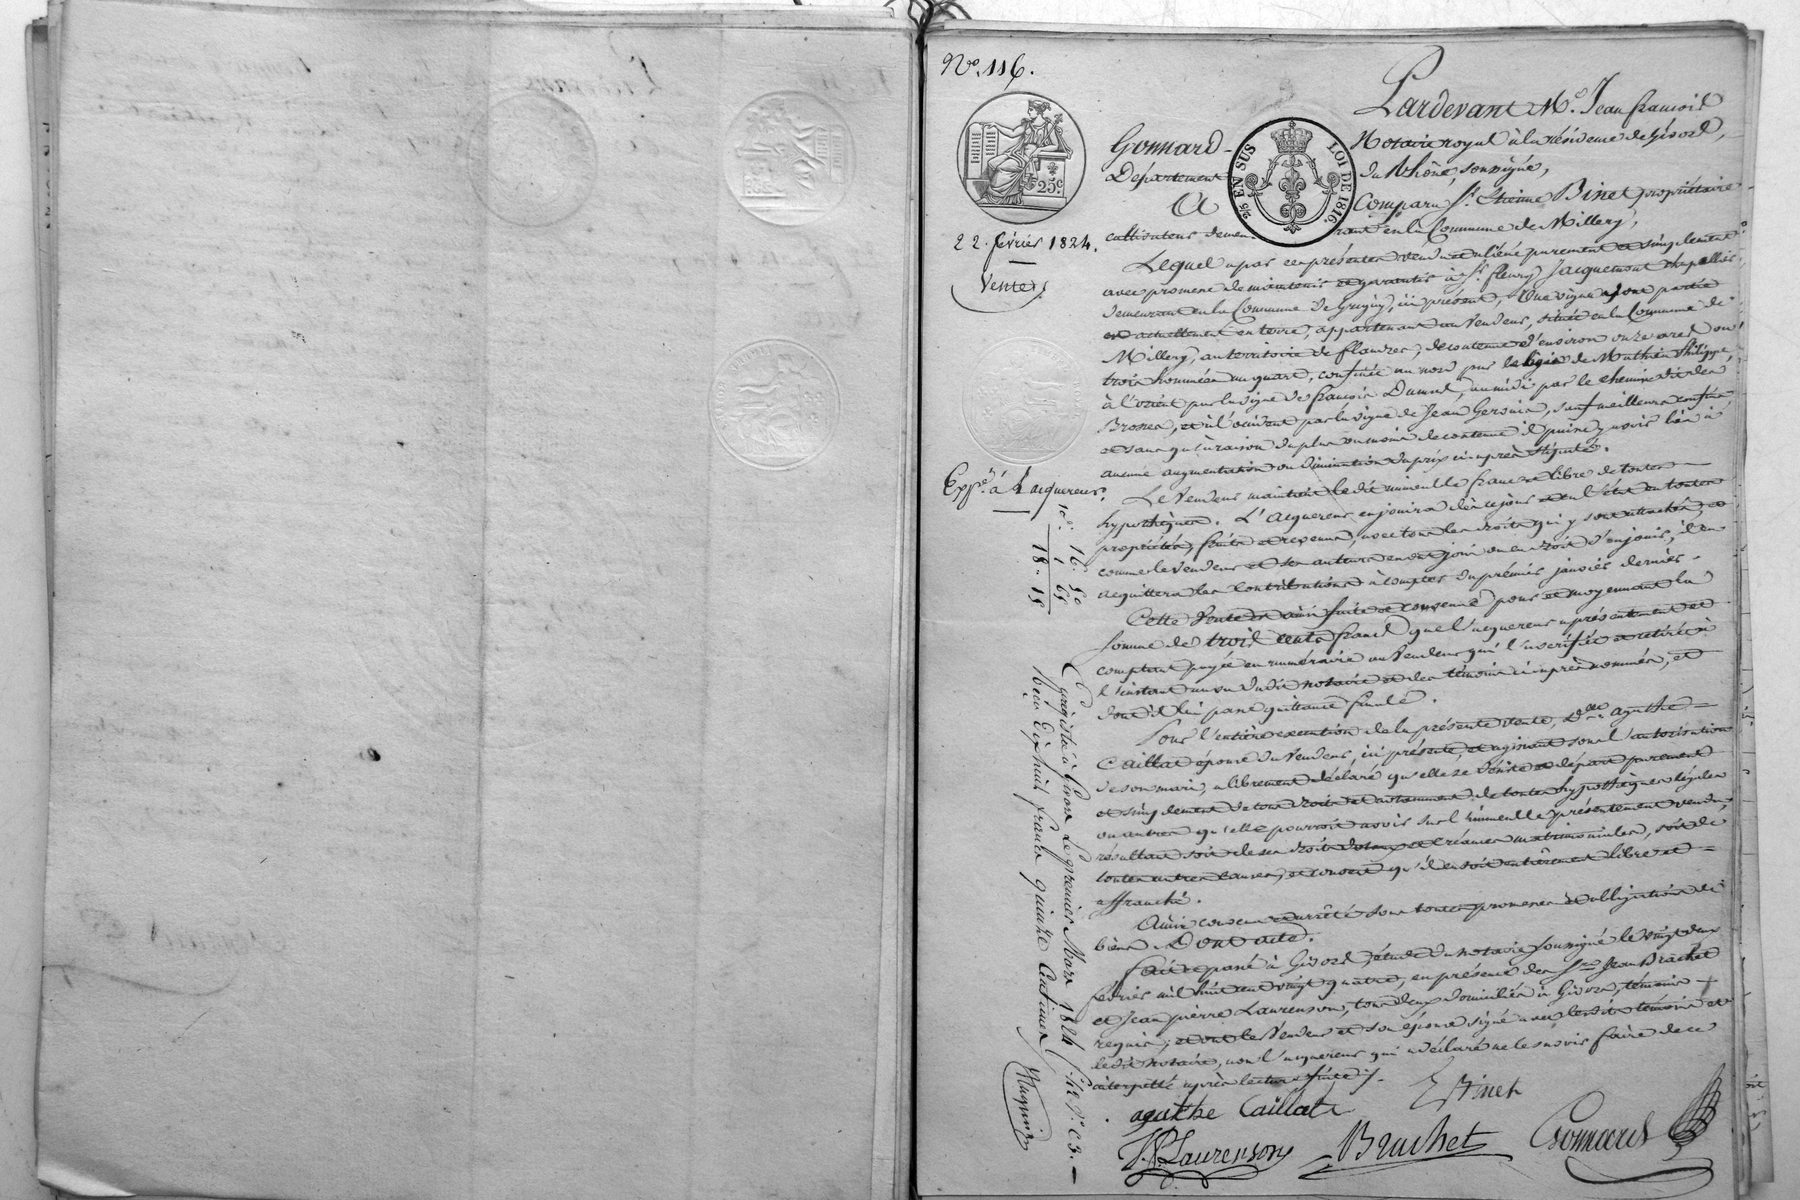 N.º 116.
25 C
2/5 EN SUS
LOI DE 1816.
22. février 1824.
Vente
Exp.é à L'acquereur
10.e 16. 50
1 65
18 - 15
Enregistré à Givors Le premier Mars 1824
Reçu dix huit francs quinze centimes
Pardevant M.e Jean françois
Gonnard Notaire royal à la résidence de Givors,
Département du Rhône, soussigné,
A Comparu S.r Etienne Binet propriétaire
cultivateur demeurant en la Commune de Millery,
Lequel a par ces présentes vendu et aliéné purement et simplement
avec promesse de maintenir et garantir à S.r fleury Jacquemont chapellier
demeurant en la Commune de Grigny, ici présent, Une vigne dont partie
est actuellement en terre, appartenant au Vendeur, située en la Commune de
Millery, au territoire de flandres, de contenue d'environ onze ares ou
trois hommées un quart, confinée au nord par la vigne de Mathieu Philippe,
à l'orient par la vigne de françois Dumond, au midi par le chemin dit des
Brosses, et à l'occident par la vigne de Jean Gervais, sauf meilleurs confins,
et sans qu'à raison du plus ou moins de contenue il puisse y avoir lieu à
aucune augmentation ou diminution du prix ci après stipulé.
Le Vendeur maintient le dit immeuble franc et libre de toutes
hypothèques. L'Acquereur en jouira dès ce jour et en l'état en toutes
propriétés, fruits et revenus, avec tous les droits qui y sont attachés, et
comme le Vendeur et ses auteurs en ont joui ou eu droit d'en jouir, il en
acquittera les Contributions à compter du premier janvier dernier.
Cette Vente est ainsi faite et consentie pour et moyennant la
somme de trois cents francs que l'acquereur a présentement et
comptant payée en numéraire au Vendeur qui l'a vérifiée et retirée à
l'instant au vu du dit notaire et des témoins ci après nommés, et
dont il lui passe quittance finale.
Pour l'entière exécution de la présente vente, D.lle agathe
Caillat épouse du Vendeur, ici présente, et agissant sous l'autorisation
de son mari, a librement déclaré qu'elle se désiste et départ purement
et simplement de tous droits et notamment de toutes hypothèques légales
ou autres qu'elle pourroit avoir sur l'immeuble présentement vendu,
résultant soit de ses droits dotaux et créances matrimoniales, soit de
toutes autres causes, et consent qu'il en soit entièrement libre et
affranchi.
Ainsi convenu et arrêté sous toutes promesses et obligations de
biens Dont acte.
fait et passé à Givors, étude du notaire soussigné le vingt deux
février mil huit cent vingt quatre, en présence des S.rs Jean Brachet
et Jean pierre Laurenson, tous deux domiciliés à Givors, témoins
requis, et ont le Vendeur et son épouse signé avec les dits témoins et
le dit notaire, non l'acquereur qui a déclaré ne le savoir faire de ce
interpellé après lecture faite.
agathe Caillat
E Binet
J.P. Laurenson
Brachet
Gonnard